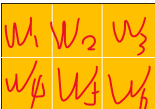 W₁ W₂ W₃
W₄ W₅ W₆